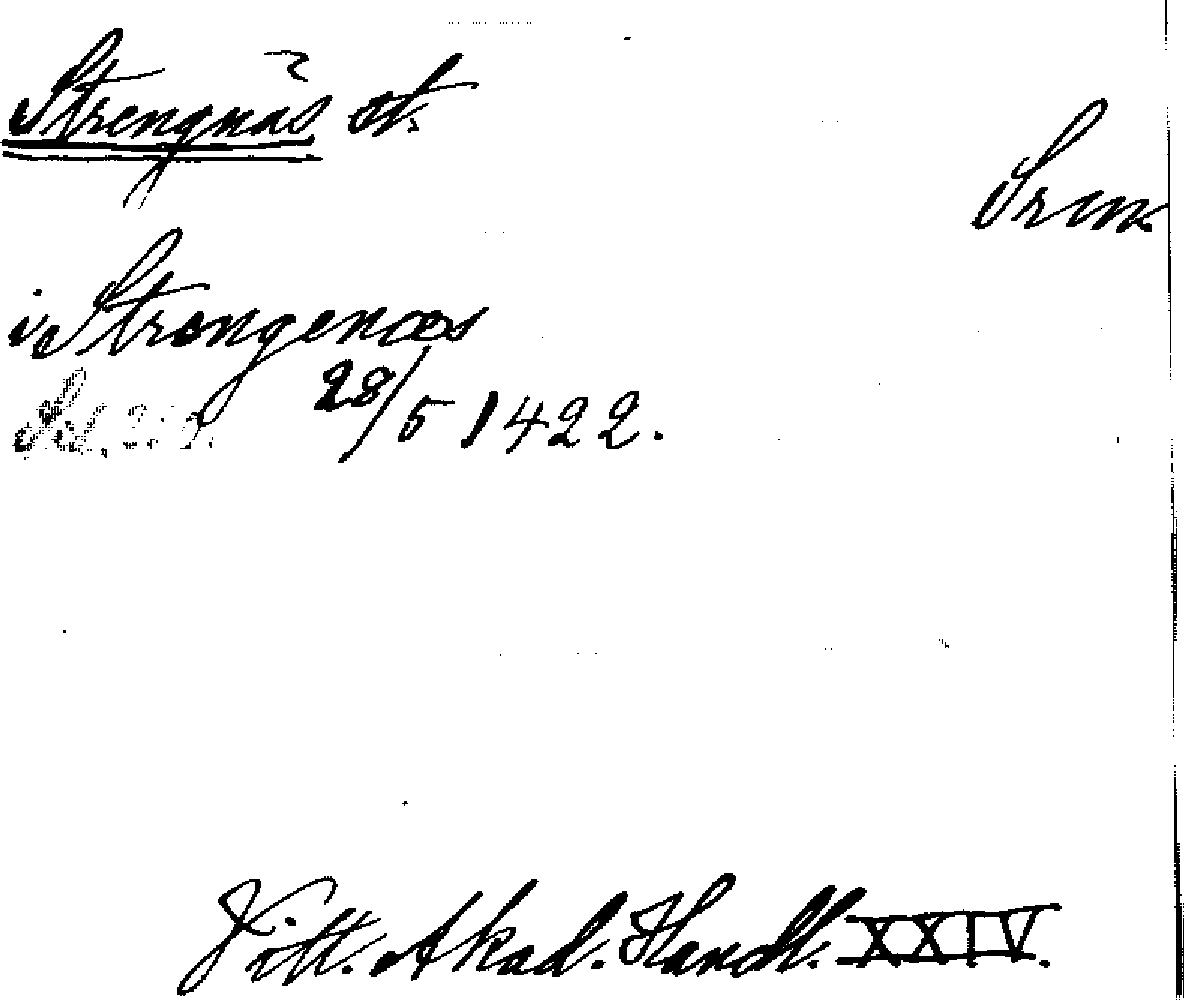 Strengnäs st.
Srmk
i Strengenæs
28/5 1422.
Vitt. Akad. Handl. XXIV.